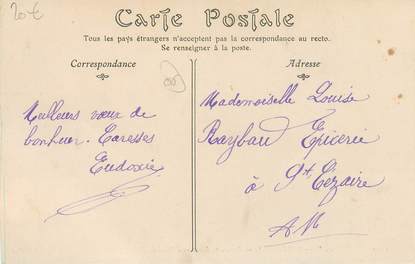 20€
Carte Postale
Tous les pays étrangers n'acceptent pas la correspondance au recto.
Se renseigner à la poste.
Correspondance
Meilleurs vœux de
bonheur. Caresses
Eudoxie
Adresse
Mademoiselle Louise
Raybaud Epicerie
à St Cézaire
A M